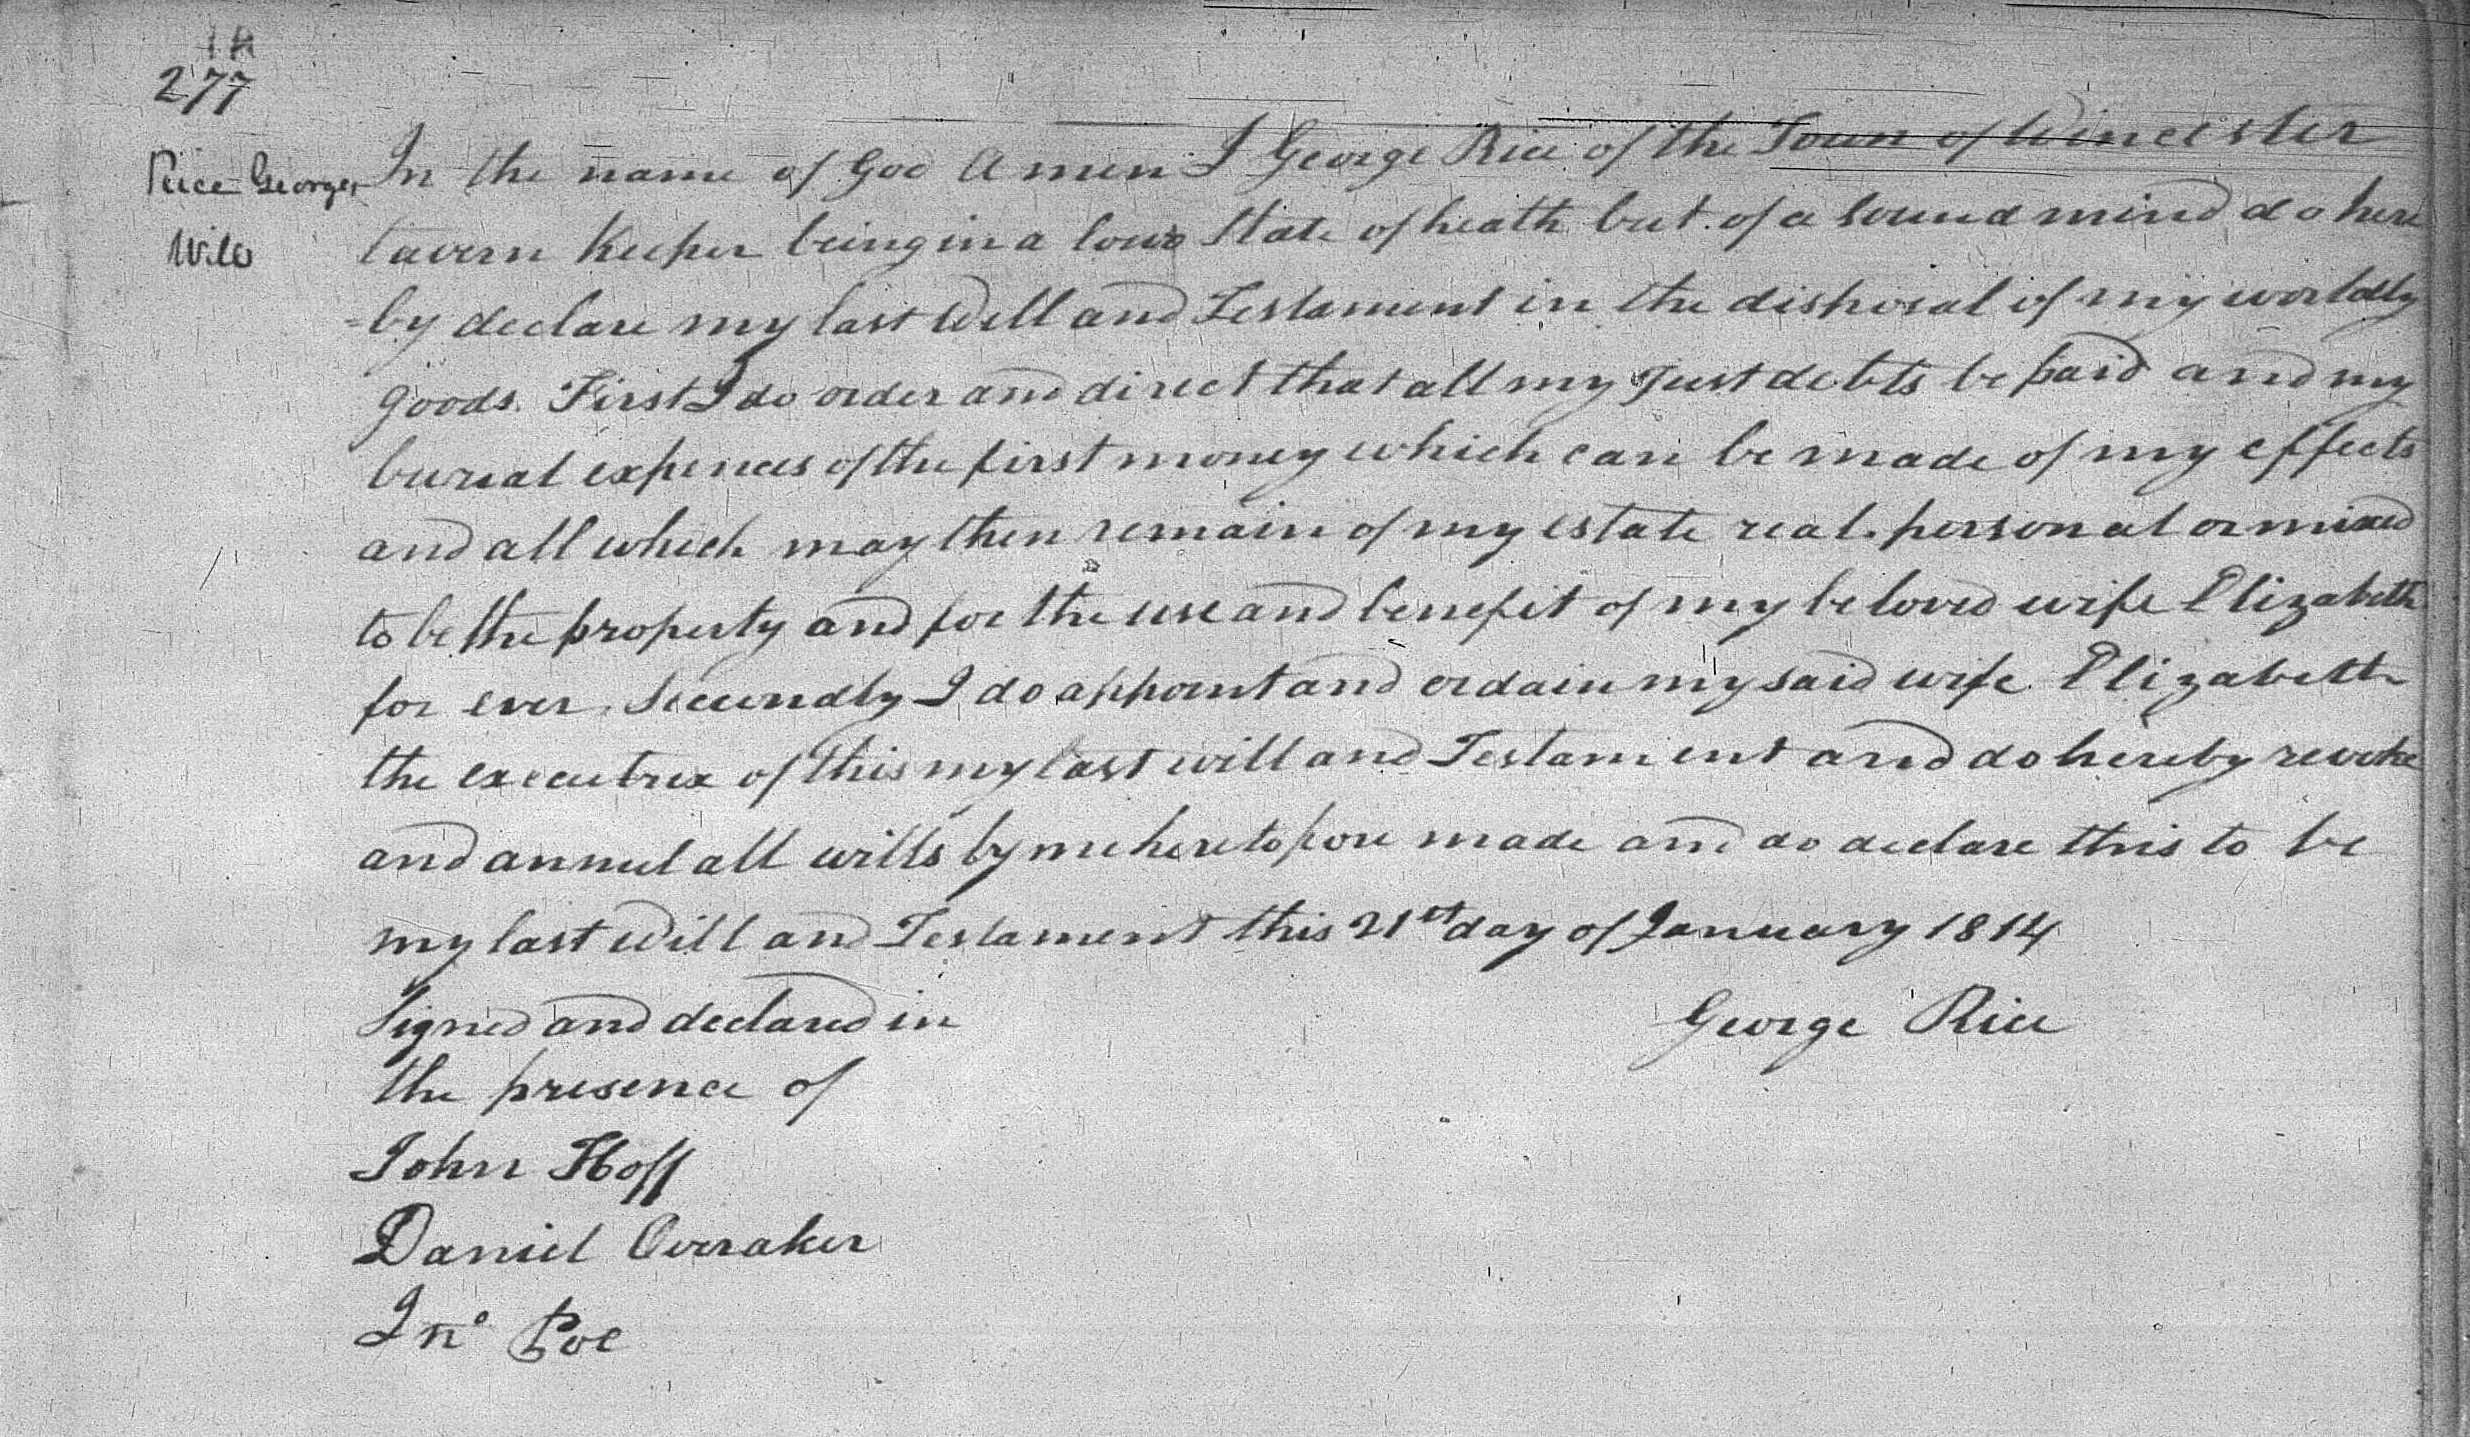 277
Rice George
Will
In the name of God Amen I George Rice of the Town of Wincester
tavern Keeper being in a low State of heath but of a sound mind do here
-by declare my last Will and Testament in the disposal of my worldly
goods. First I do order and direct that all my Just debts be paid and my
burial expences of the first money which can be made of my effects
and all which may then remain of my estate real. personal or mixed
to be the property and for the use and benefit of my beloved wife Elizabeth
for ever. Secundly I do appoint and ordain my said wife Elizabeth
the executrix of this my last will and Testament and do hereby revoke
and annul all wills by me heretofore made and do declare this to be
my last Will and Testament this 21st day of January 1814
Signed and declared in George Rice
the presence of
John Hoff
Daniel Overaker
Jno Poe